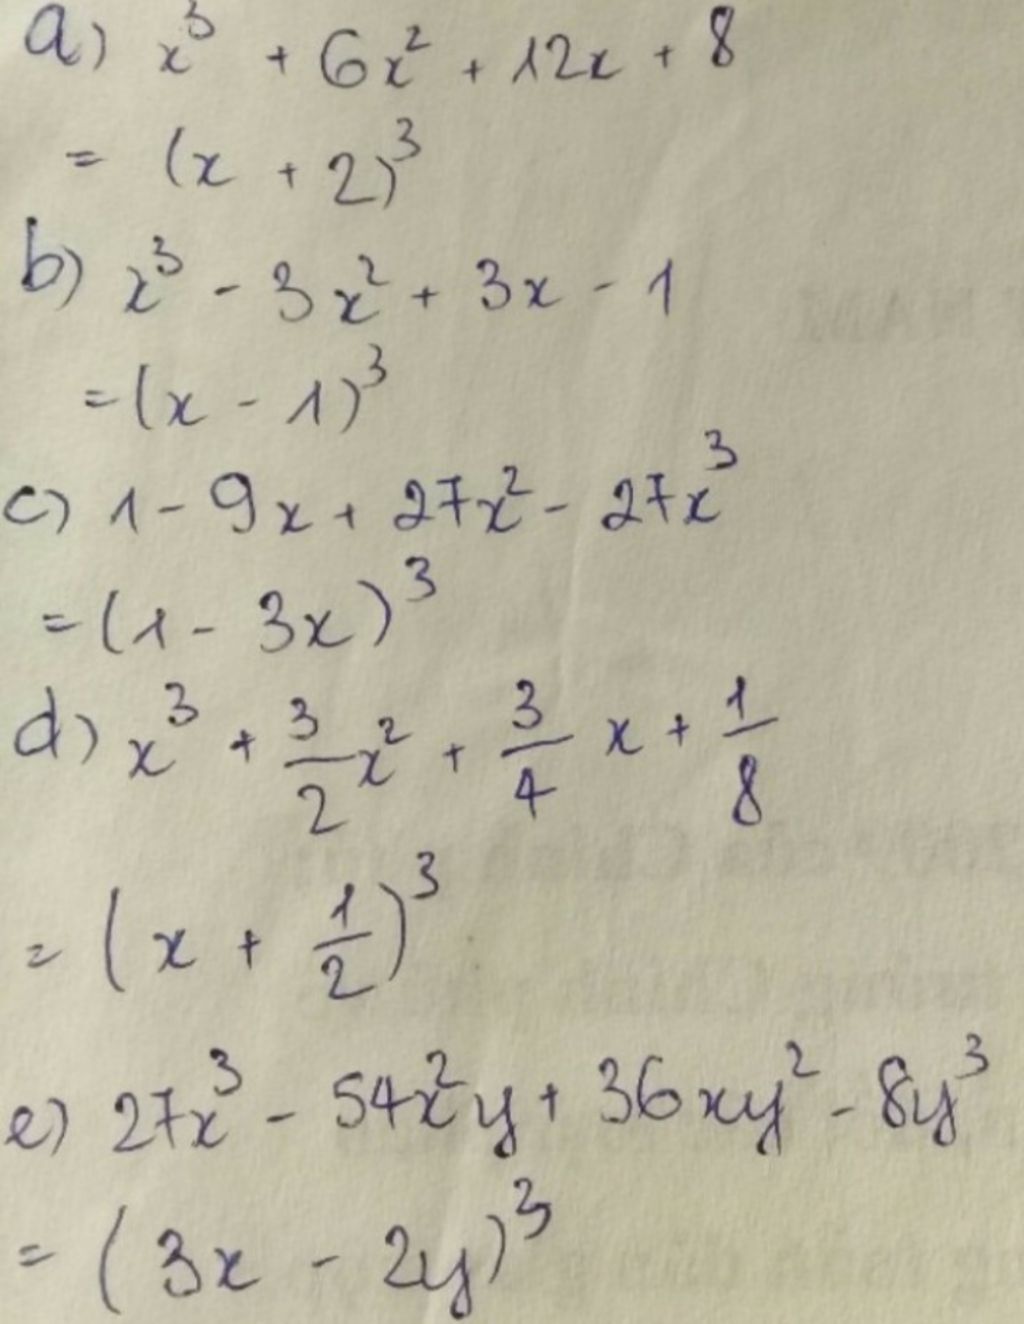 a) x³ + 6x² + 12x + 8
= (x + 2)³
b) x³ - 3x² + 3x - 1
= (x - 1)³
c) 1 - 9x + 27x² - 27x³
= (1 - 3x)³
d) x³ + 3/2 x² + 3/4 x + 1/8
= (x + 1/2)³
e) 27x³ - 54x²y + 36xy² - 8y³
= (3x - 2y)³